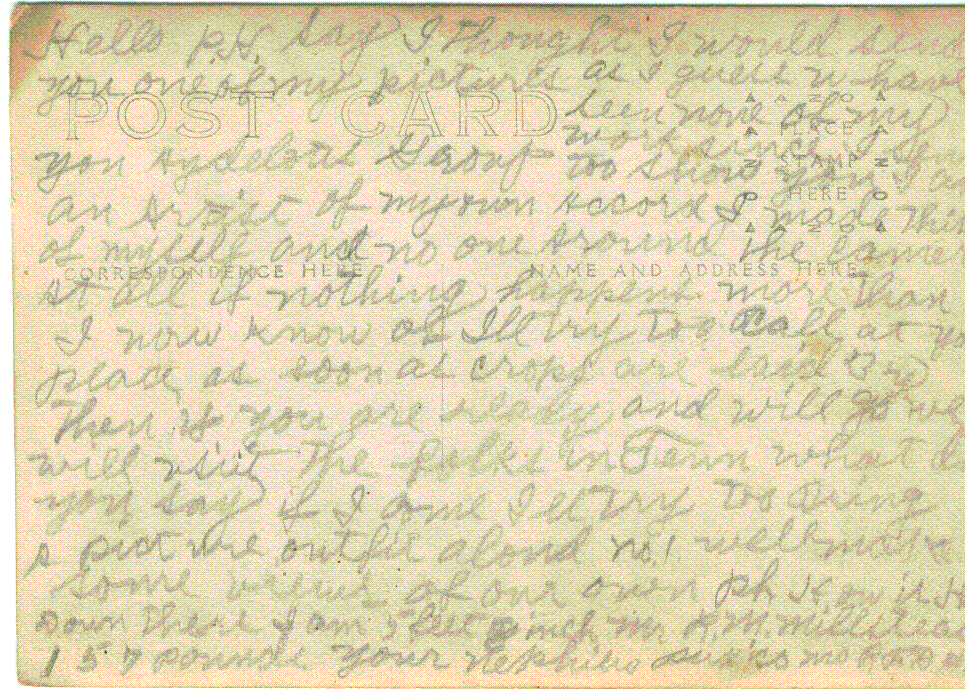 Hello P.H. Say I thought I would send
you one of my pictures as I guess u have
POST CARD
seen none of my
work since I
PLACE
STAMP
HERE
you Group too show you I am
an Artist of my own Accord I made them
of myself and no one Around The Camer
CORRESPONDENCE HERE
NAME AND ADDRESS HERE
At all if nothing happens more Than
I now know of Ill Try Too Call at yo
place as soon as crops are laid By
Then if you are ready and will go we
will visit The folks in Tenn what do
you say if I come Ill Try Too Bring
A picture outfit alond no.1. well make
some views of our own
Down There I am 5 feet inch Mr Millstead
157 pounds your Nephiew